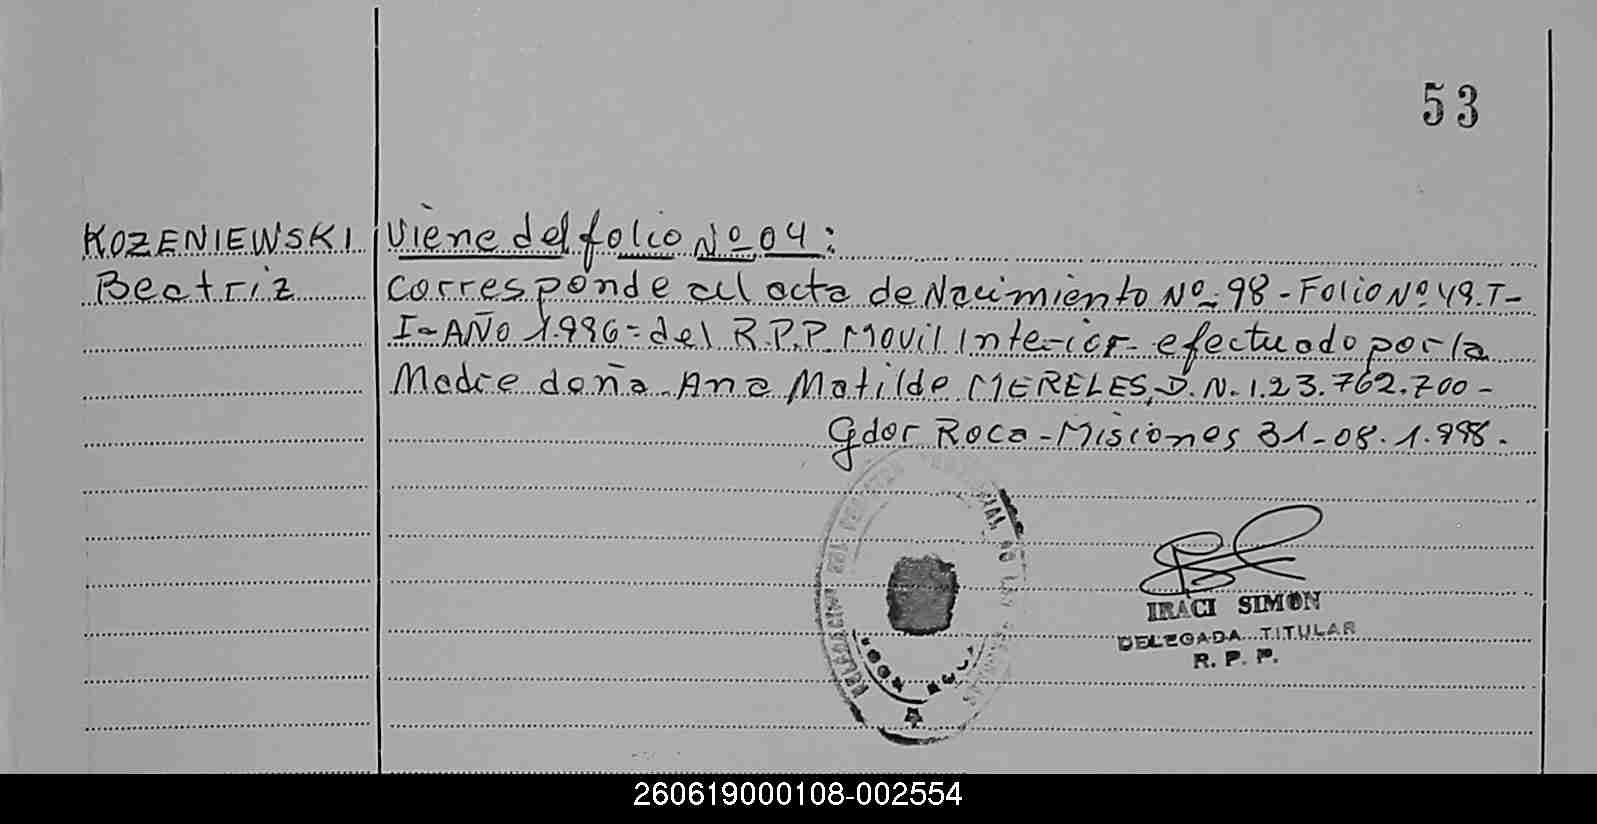 53
KOZENIEWSKI Viene del folio Nº 04:
Beatriz corresponde al acta de Nacimiento Nº 98 - Folio Nº 49. T-
I - AÑO 1.996 = del R.P.P. Movil Interior efectuado por la
Madre doña Ana Matilde MERELES, D.N.I. 23.762.700 -
Gdor Roca - Misiones 31-08.1.998.
IRACI SIMON
DELEGADA TITULAR
R. P. P.
260619000108-002554